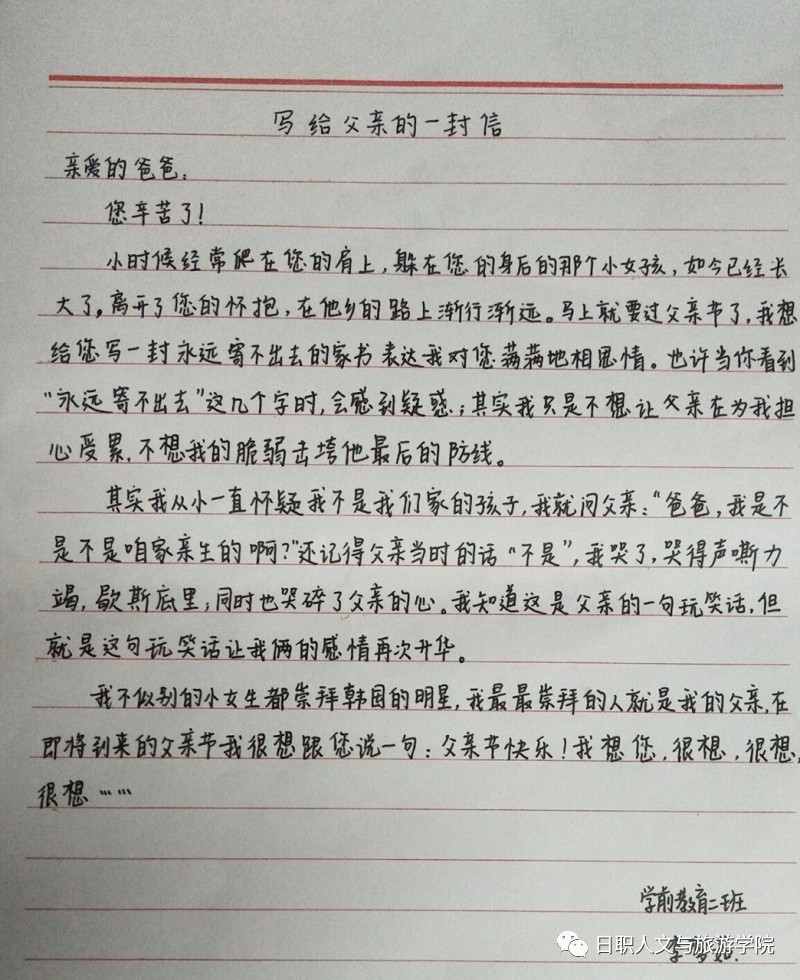 写给父亲的一封信
亲爱的爸爸：
您辛苦了！
小时候经常爬在您的肩上，躲在您的身后的那个小女孩，如今已经长
大了。离开了您的怀抱，在他乡的路上渐行渐远。马上就要过父亲节了，我想
给您写一封永远寄不出去的家书表达我对您满满地相思情。也许当你看到
“永远寄不出去”这几个字时，会感到疑惑；其实我只是不想让父亲在为我担
心受累，不想我的脆弱击垮他最后的防线。
其实我从小一直怀疑我不是我们家的孩子，我就问父亲：“爸爸，我是不
是不是咱家亲生的啊？”还记得父亲当时的话“不是”，我哭了，哭得声嘶力
竭，歇斯底里；同时也哭碎了父亲的心。我知道这是父亲的一句玩笑话，但
就是这句玩笑话让我俩的感情再次升华。
我不似别的小女生都崇拜韩国的明星，我最最崇拜的人就是我的父亲，在
即将到来的父亲节我很想跟您说一句：父亲节快乐！我想您，很想，很想，
很想……
学前教育二班
日职人文与旅游学院